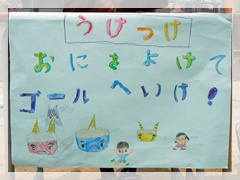 うひっけ
おにをよけて
ゴールへいけ!